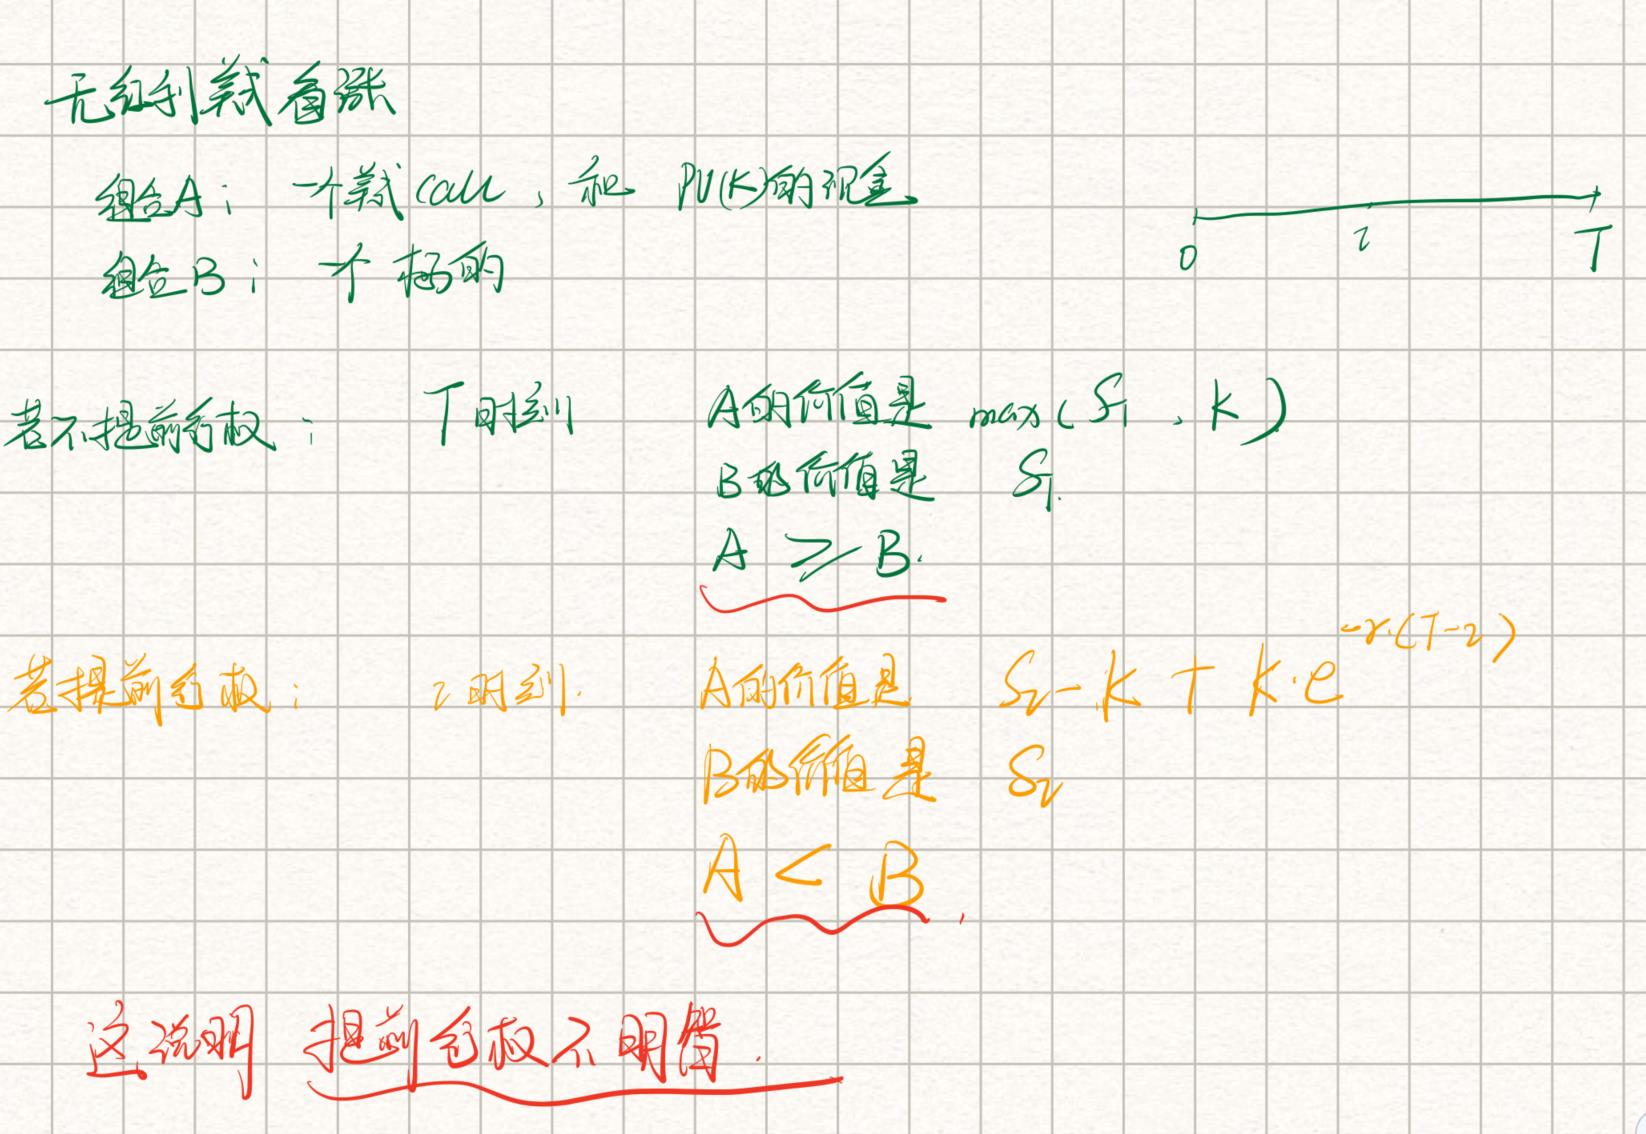 无红利美式看涨
组合A: 一个美式call, 和 PV(K)的现金.
组合B: 一个标的
0 τ T
若不提前行权: T时刻 A的价值是 max(S_T, K)
B的价值是 S_T.
A ≥ B.
若提前行权: τ时刻. A的价值是 S_τ - K + K·e^{-r·(T-τ)}
B的价值是 S_τ
A < B.
这说明 提前行权不明智.